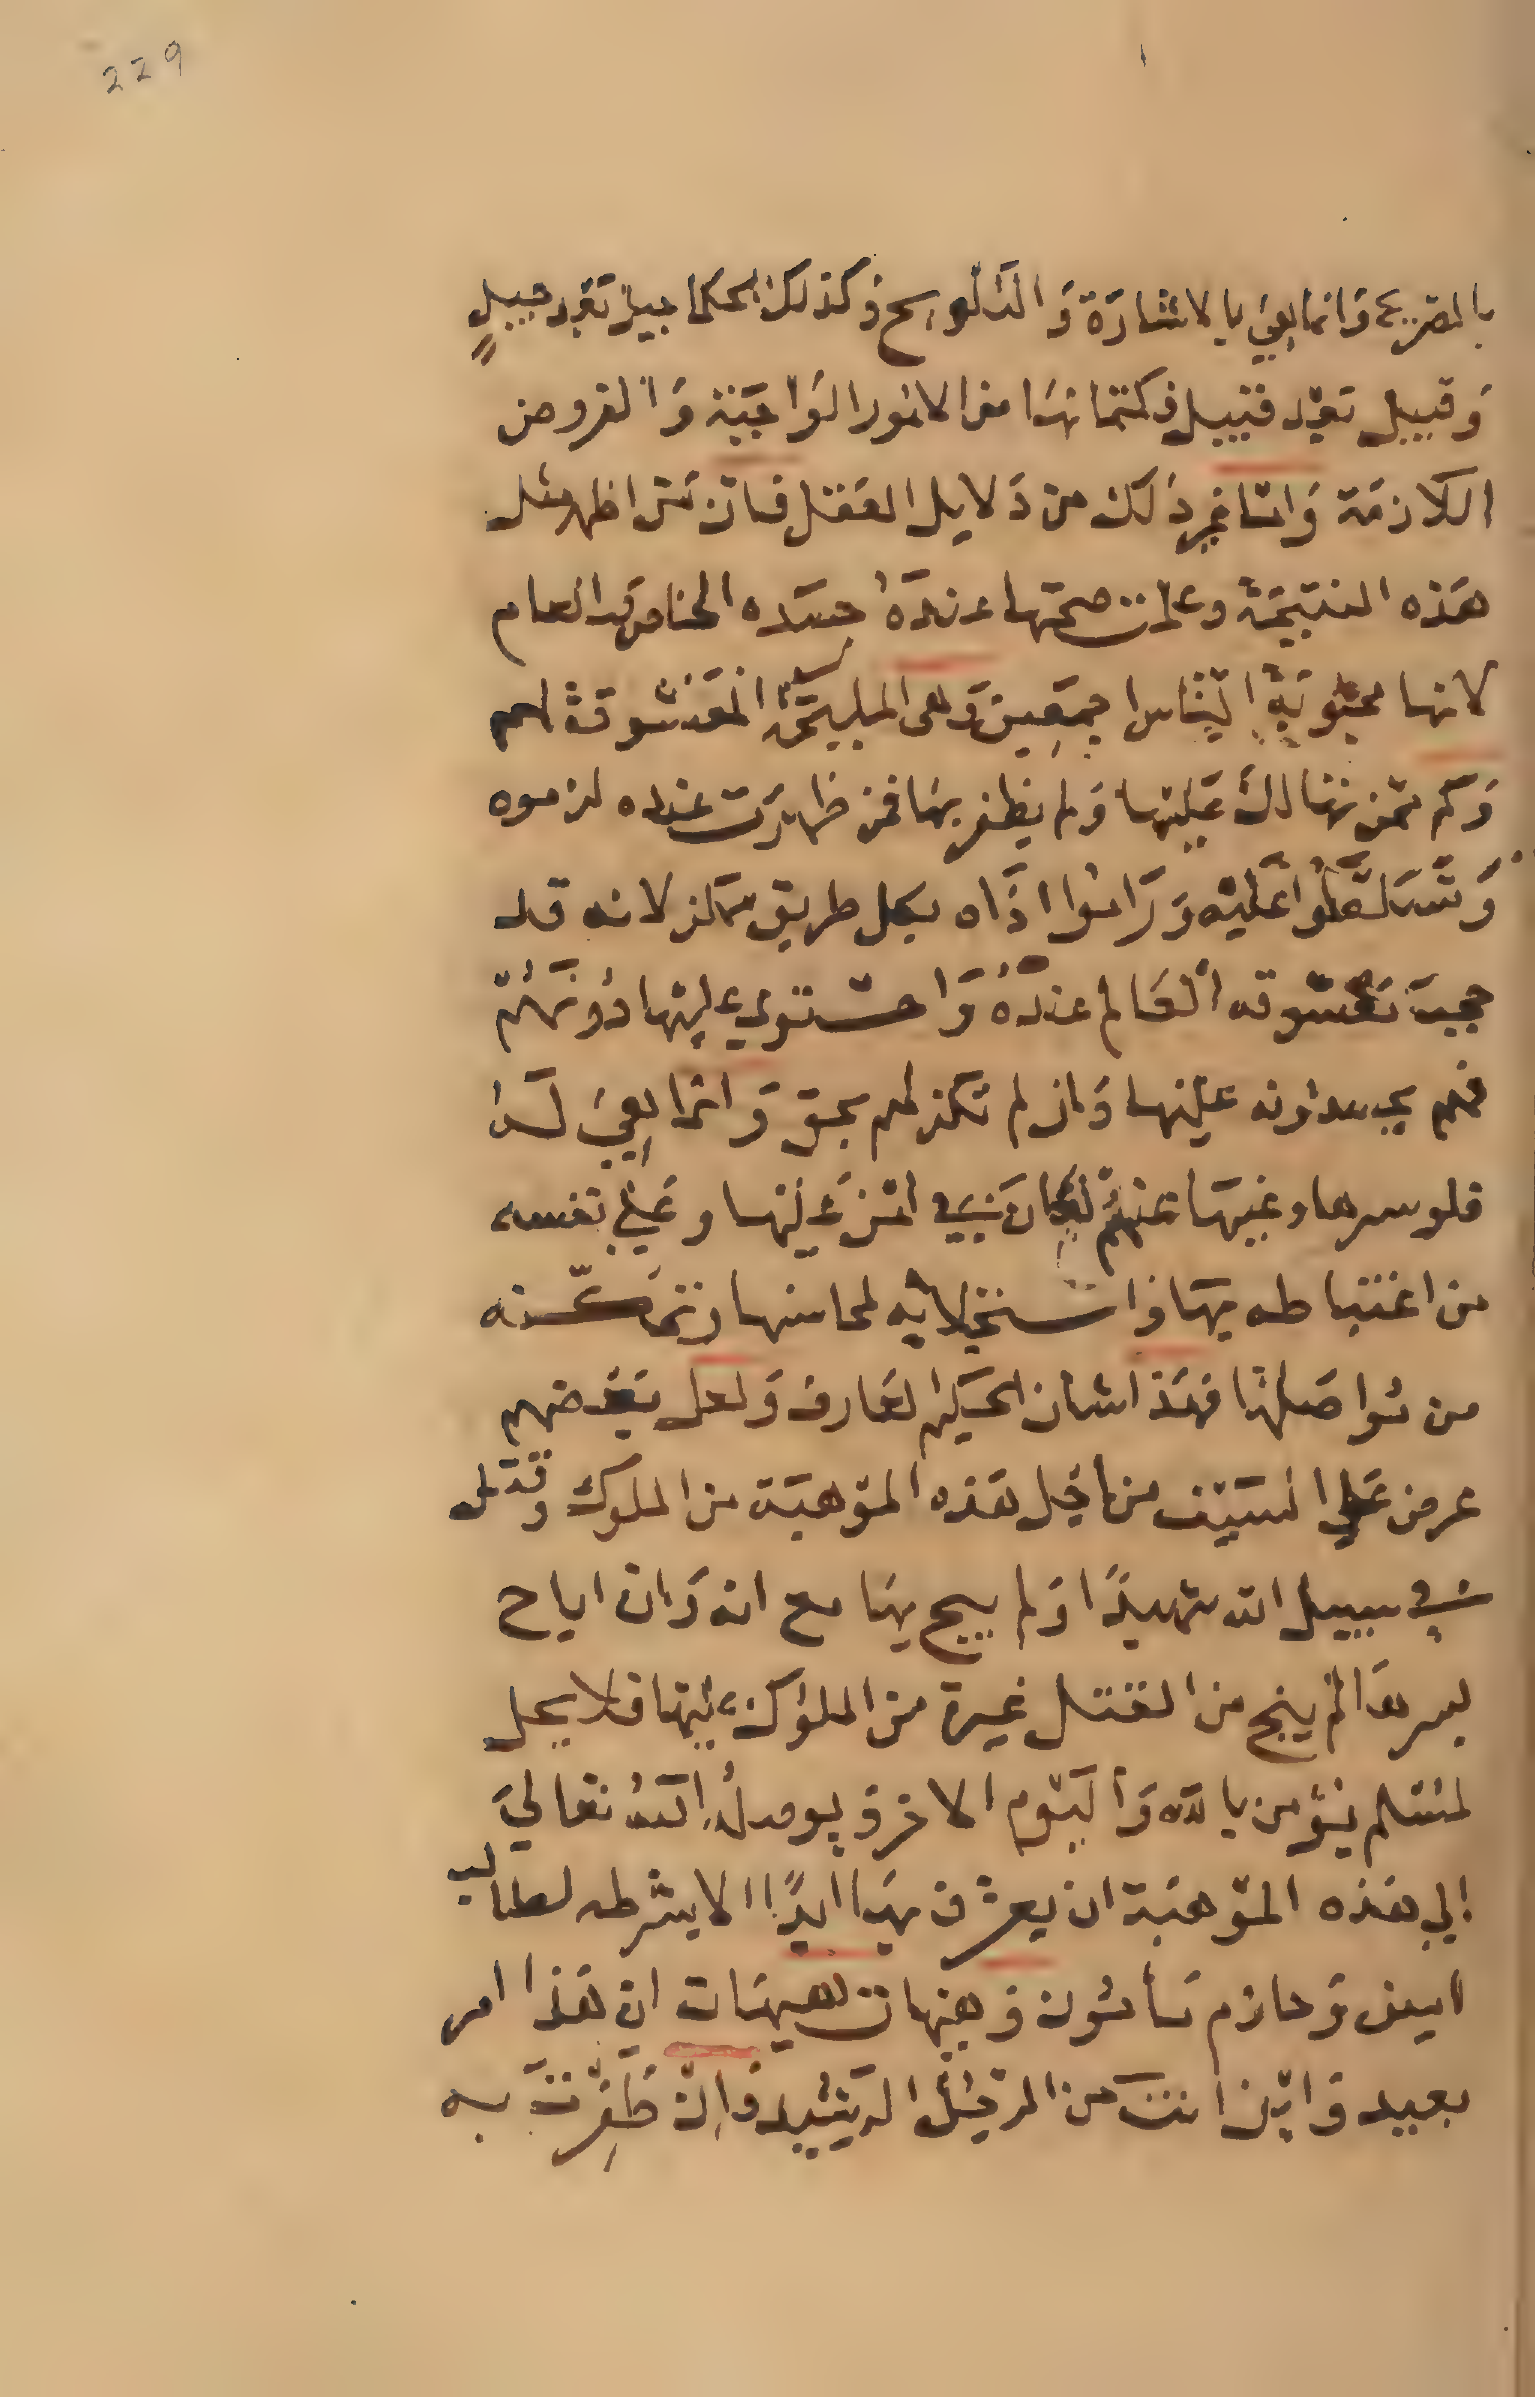 229
بالتصريح وَانما بقي بالاشارَة وَالتَلويح وَكذلك الحكما جيل بَعد جيلٍ
وَقبيل بَعد قبيل وَكتمانهَا من الامُور الوَاجبَة وَالفروض
اللازمَة وَاما غير ذَلك من دَلايل العَقل فان مَن اظهر مثل
هَذه النتيجَة وعلمت صحتها عندَهُ حسَده الخاص والعام
لانها محبُوبَة النّاس اجمَعين وَهى المليحَة المَعشوقَة لهم
وَكم ممن تهالك عَليها وَلم يظفر بهَا فمن ظهرَت عنده لزموه
وَتسَلطُوا عَليْه وَرَامُوا اذَاه بكل طريق ممكن لانه قد
حجبَ مَعشوقه العَالم عندَهُ وَاحتوي عليها دُونَهُمْ
فهم يحسدونه عليها وَان لم تكن لهم بحق وَانما بقي لَهُ
فلو سرها وغيبَها عنهُم لكان في امن عَليها وعَلي نفسه
من اغتباطه بهَا وَاستخلايه لمحاسنها وتمكنه
من مُواصَلتهَا فهَذا شان الحَكيم العَارف وَلعل بَعضهم
عرض عَلي السَيْف من اجل هَذه المَوهبَة من الملوك وقتل
في سبيل الله شهيدًا وَلم يبح بهَا مع انه وَان اباح
بسرهَا لم ينج من القتل غيرة من الملوك عليهَا فلا يحل
لمسَلم يُؤمن بالله وَاليَوم الاخر وَيوصلُه اللهُ تعَالي
إلي هَذه المَوهبَة ان يعرّف بهَا ابدًا الا بشرطه لطالب
امين وَحازم مَأمُون وَهيهات هيهَات ان هَذا امر
بعيد وَاين انتَ من الرجُل الرَشيد وَإن ظَفِرْتَ به